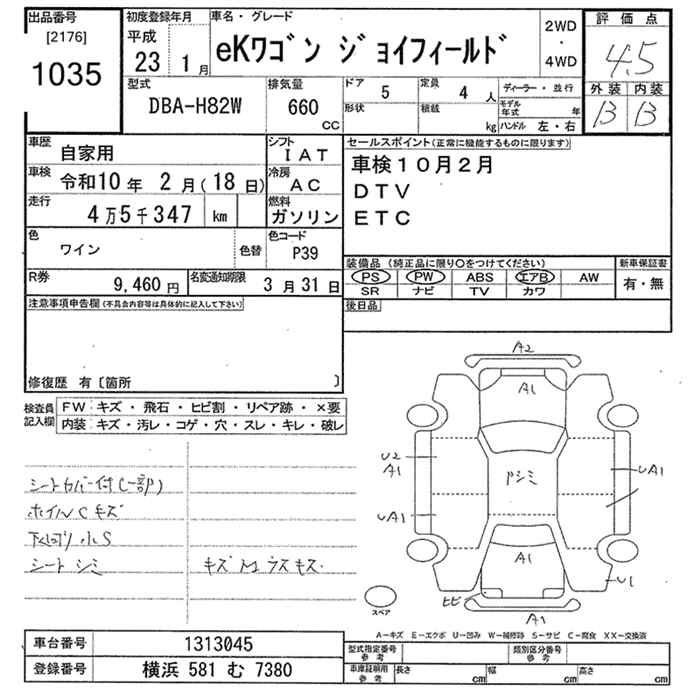 出品番号
[2176]
1035
初度登録年月
平成
23 1月
車名・グレード
eKワゴン ジョイフィールド
2WD
・
4WD
評価点
4.5
外装 内装
B B
型式
DBA-H82W
排気量
660
CC
ドア 5
形状
定員 4 人
積載 kg
ディーラー・並行
モデル年式 年
ハンドル 左・右
車歴 自家用
シフト IAT
車検 令和10年 2月(18日)
冷房 AC
走行 4万5千347 km
燃料 ガソリン
色 ワイン
色替
色コード P39
R券 9,460円
名変通知期限 3月31日
セールスポイント(正常に機能するものに限ります)
車検10月2月
DTV
ETC
装備品(純正品に限り○をつけてください)
新車保証書
PS PW ABS エアB AW
SR ナビ TV カワ
有・無
後日品
注意事項申告欄(不具合内容等は具体的に記入して下さい)
修復歴 有〔箇所 〕
検査員記入欄
FW キズ・飛石・ヒビ割・リペア跡・×要
内装 キズ・汚レ・コゲ・穴・スレ・キレ・破レ
シートカバー付(一部)
ホイルCキズ
下廻り小S
シートシミ
キズ M ウスキズ
A2
A1
U2
A1
UA1
トシミ
UA1
UA1
A1
U1
ヒビ
A1
スペア
A-キズ E-エクボ U-凹み W-補修跡 S-サビ C-腐食 XX-交換済
車台番号 1313045
登録番号 横浜 581 む 7380
型式指定番号 参考
類別区分番号 参考
車庫証明用 参考
長さ cm
幅 cm
高さ cm